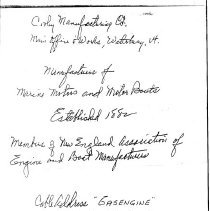 Manufacturing Co.
Main Office & Works, Waterbury, Ct.
Manufacturers of
Marine Motors and Motor Boats
Established 1882
Members of New England Association of
Engine and Boat Manufacturers
Cable Address "GASENGINE"